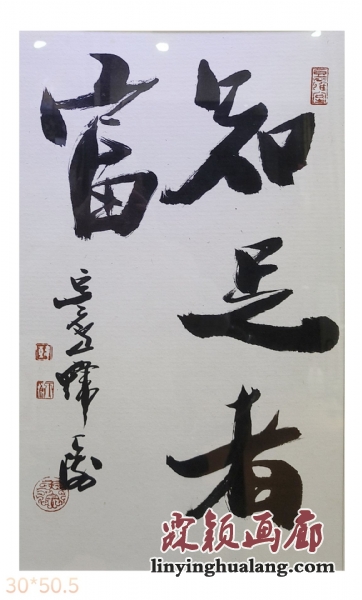 知足者
富
霖颖画廊
linyinghualang.com
30*50.5